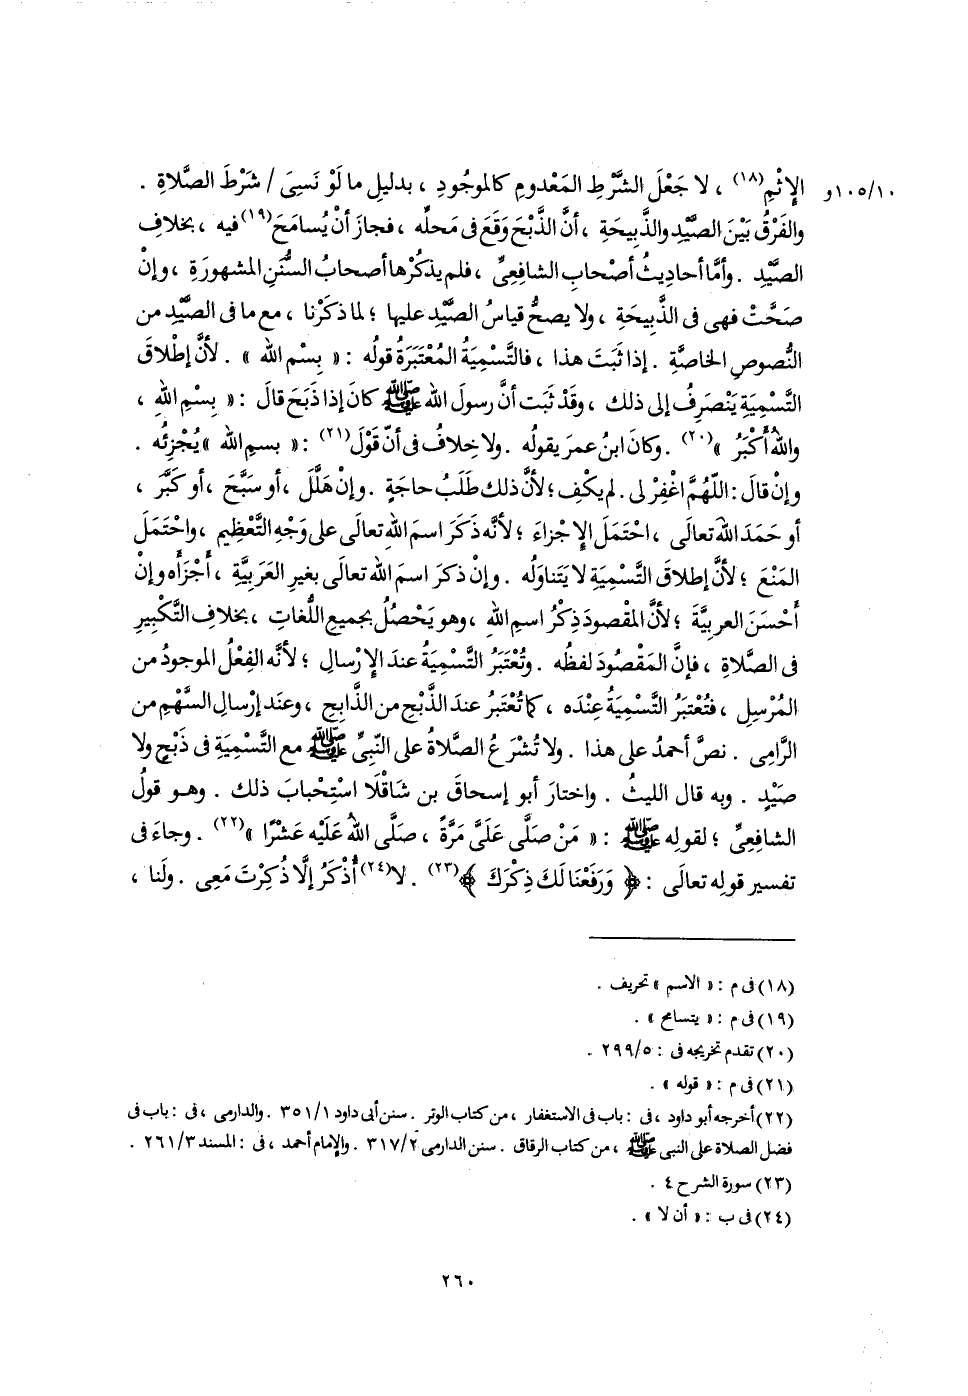 ١٠/١٠٥و الإِثْمِ(١٨) ، لا جَعْلَ الشَّرْطِ المَعْدومِ كالموجُودِ ، بدليلِ ما لَوْ نَسِىَ / شَرْطَ الصَّلاةِ .
والفَرْقُ بَيْنَ الصَّيْدِ والذَّبِيحَةِ ، أنَّ الذَّبْحَ وَقَعَ فى مَحلِّه ، فجازَ أنْ يُسامَحَ(١٩) فيه ، بخلافِ
الصَّيْدِ . وأمَّا أحاديثُ أصْحابِ الشافعِىِّ ، فلم يذكرْها أصحابُ السُّنَنِ المشهورَةِ ، وإنْ
صَحَّتْ فهى فى الذَّبِيحَةِ ، ولا يصحُّ قياسُ الصَّيْدِ عليها ؛ لما ذكَرْنا ، مع ما فى الصَّيْدِ من
النُّصوصِ الخاصَّةِ . إذا ثَبَتَ هذا ، فالتَّسْمِيَةُ المُعْتَبَرَةُ قولُه : « بِسْمِ اللهِ » . لأنَّ إطْلاقَ
التَّسْمِيَةِ يَنْصَرِفُ إلى ذلك ، وقَدْ ثَبَت أنَّ رسولَ اللهِ ﷺ كان إذا ذَبَحَ قالَ : « بِسْمِ اللهِ ،
واللهُ أَكْبَرُ »(٢٠) . وكان ابنُ عمرَ يقولُه . ولا خِلافُ فى أنّ قَوْلَ(٢١) : « بسمِ الله » يُجْزِئُه .
وإنْ قال : اللَّهُمَّ اغْفِرْ لى . لم يكْفِ ؛ لأنَّ ذلك طَلَبُ حاجَةٍ . وإنْ هَلَّلَ ، أو سَبَّحَ ، أو كَبَّرَ ،
أو حَمَدَ اللهَ تعالَى ، احْتَمَلَ الإجْزاءَ ؛ لأنَّه ذَكَرَ اسمَ اللهِ تعالى على وَجْهِ التَّعْظِيمِ ، واحْتَمَلَ
المَنْعَ ؛ لأنَّ إطلاقَ التَّسْمِيَةِ لا يَتناوَلُه . وإن ذكرَ اسمَ اللهِ تعالى بغيرِ العَرَبِيَّةِ ، أَجْزَأَه وإنْ
أَحْسَنَ العربِيَّةَ ؛ لأنَّ المقْصودَ ذِكْرُ اسمِ اللهِ ، وهو يَحْصُلُ بجميعِ اللُّغاتِ ، بخلافِ التَّكْبِيرِ
فى الصَّلاةِ ، فإنَّ المَقْصُودَ لفظُه . وتُعْتَبَرُ التَّسْمِيَةُ عندَ الإِرْسالِ ؛ لأنَّه الفِعْلُ الموجودُ من
المُرْسِلِ ، فتُعْتَبَرُ التَّسْمِيَةُ عِنْدَه ، كما تُعْتَبرُ عندَ الذَّبْحِ من الذَّابِحِ ، وعندَ إرْسالِ السَّهْمِ من
الرَّامِى . نصَّ أحمدُ على هذا . ولا تُشْرَعُ الصَّلاةُ على النَّبِىِّ ﷺ مع التَّسْمِيَةِ فى ذَبْحٍ ولا
صَيْدٍ . وبه قال الليثُ . واختار أبو إسحاقَ بن شَاقْلَا اسْتِحْبابَ ذلك . وهو قولُ
الشافِعِىِّ ؛ لقولِه ﷺ : « مَنْ صَلَّى عَلَىَّ مَرَّةً ، صَلَّى اللهُ عَلَيْهِ عَشْرًا »(٢٢) . وجاءَ فى
تفسيرِ قولِه تعالَى : ﴿ وَرَفَعْنَا لَكَ ذِكْرَكَ ﴾(٢٣) . لا(٢٤) أُذْكَرُ إلَّا ذُكِرْتَ مَعِى . ولَنا ،
(١٨) فى م : « الاسم » تحريف .
(١٩) فى م : « يتسامح » .
(٢٠) تقدم تخريجه فى : ٢٩٩/٥ .
(٢١) فى م : « قوله » .
(٢٢) أخرجه أبو داود ، فى : باب فى الاستغفار ، من كتاب الوتر . سنن أبى داود ٣٥١/١ . والدارمى ، فى : باب فى
فضل الصلاة على النبى ﷺ ، من كتاب الرقاق . سنن الدارمى ٣١٧/٢ . والإمام أحمد ، فى : المسند ٢٦١/٣ .
(٢٣) سورة الشرح ٤ .
(٢٤) فى ب : « أن لا » .
٢٦٠